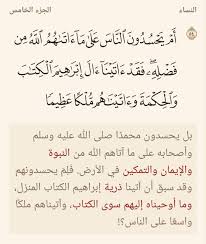 النساء الجزء الخامس
٥٤
أَمۡ يَحۡسُدُونَ ٱلنَّاسَ عَلَىٰ مَآ ءَاتَىٰهُمُ ٱللَّهُ مِن
فَضۡلِهِۦۖ فَقَدۡ ءَاتَيۡنَآ ءَالَ إِبۡرَٰهِيمَ ٱلۡكِتَٰبَ
وَٱلۡحِكۡمَةَ وَءَاتَيۡنَٰهُم مُّلۡكًا عَظِيمٗا
بل يحسدون محمدًا صلى الله عليه وسلم
وأصحابه على ما آتاهم الله من النبوة
والإيمان والتمكين في الأرض. فَلِمَ يحسدونهم
وقد سبق أن آتينا ذرية إبراهيم الكتاب المنزل،
وما أوحيناه إليهم سوى الكتاب، وآتيناهم ملكًا
واسعًا على الناس؟!